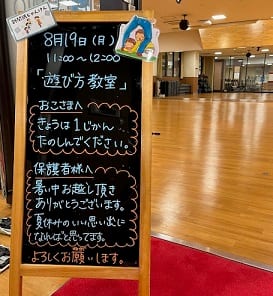 8月19日(月)
11:00〜12:00
「遊び方教室」
おこさまへ
きょうは1じかん
たのしんでください。
保護者様へ
暑い中お越し頂き
ありがとうございます。
夏休みのいい思い出に
なればと思ってます。
よろしくお願いします。